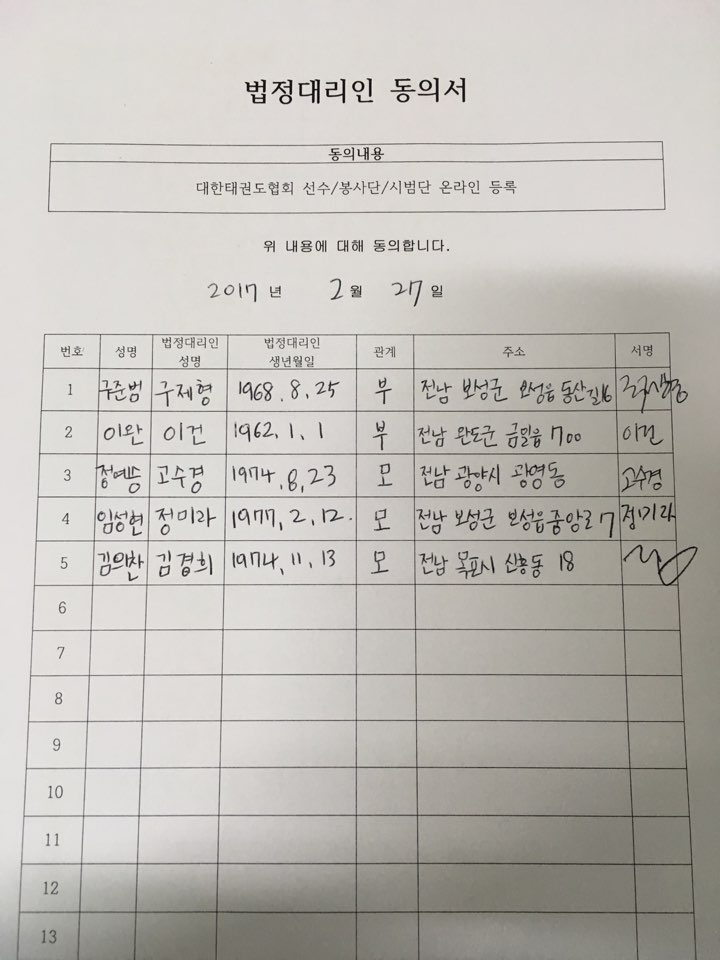 법정대리인 동의서
동의내용
대한태권도협회 선수/봉사단/시범단 온라인 등록
위 내용에 대해 동의합니다.
2017 년 2 월 27 일
번호 성명 법정대리인 성명 법정대리인 생년월일 관계 주소 서명
1 구준범 구제형 1968. 8. 25 부 전남 보성군 보성읍 동산길16
2 이완 이건 1962. 1. 1 부 전남 완도군 금일읍 700 이건
3 정예승 고수경 1974. 8, 23 모 전남 광양시 광영동 고수경
4 임성현 정미라 1977, 2, 12. 모 전남 보성군 보성읍 중앙로 7 정미라
5 김의찬 김경희 1974, 11, 13 모 전남 목포시 신흥동 18
6
7
8
9
10
11
12
13